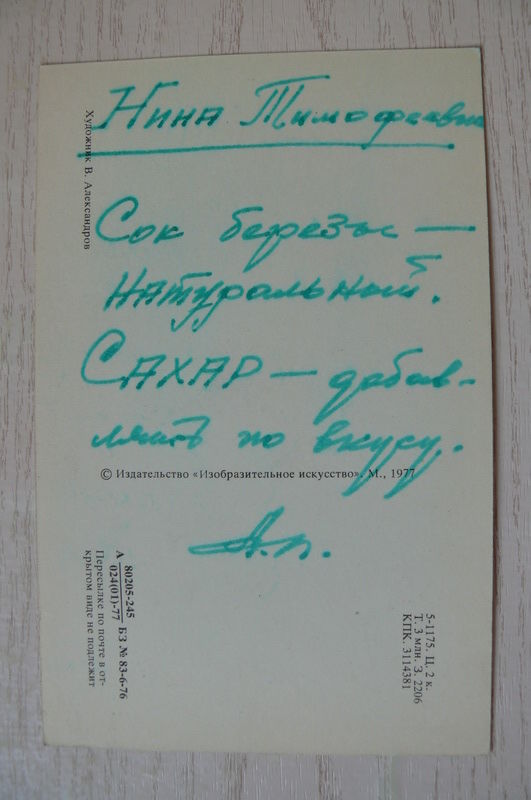 Нина Тимофеевна
Художник В. Александров
Сок березы —
натуральный.
САХАР — добав-
лять по вкусу.
© Издательство «Изобразительное искусство». М., 1977
А.п.
А 80205-245
024(01)-77 БЗ № 83-6-76
Пересылке по почте в от-
крытом виде не подлежит
5-1175. Ц. 2 к.
Т. 3 млн. З. 2206
КПК. 3114381